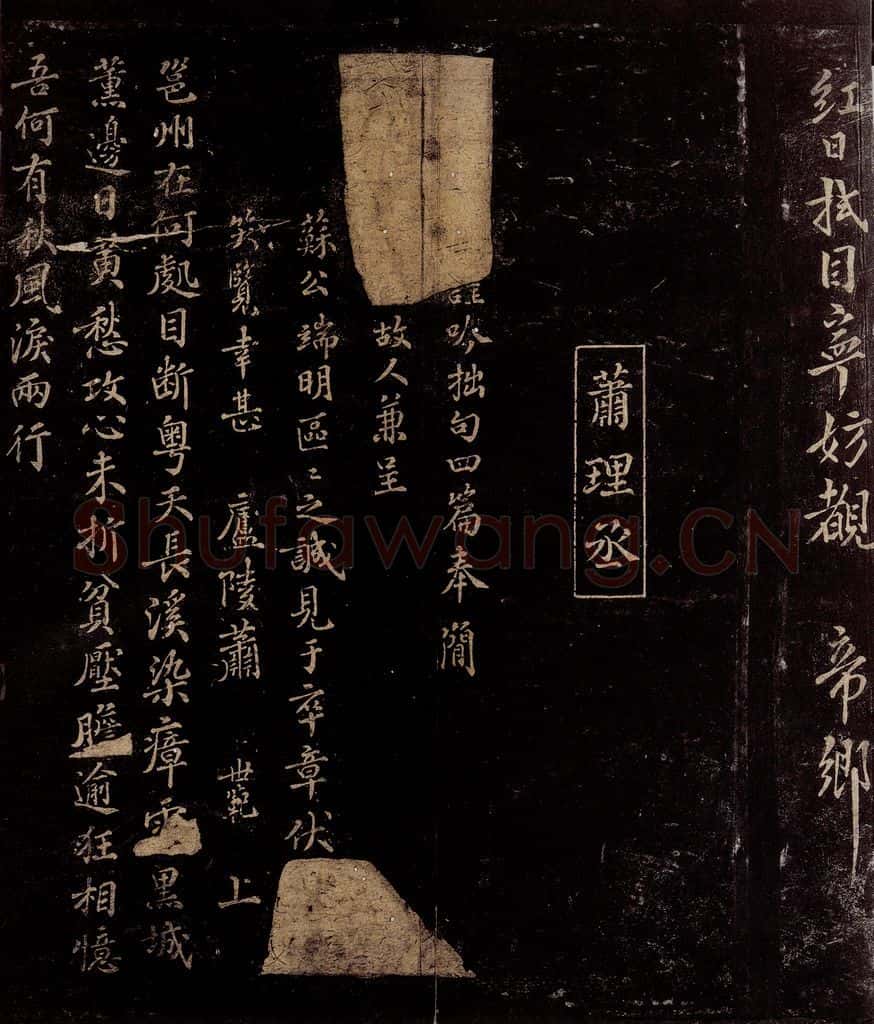 紅日拭目寧妨覩 帝鄉
蕭理丞
吟拙句四篇奉簡
故人兼呈
蘇公端明區〻之誠見于卒章伏
笑覽幸甚 廬陵蕭 世範 上
邕州在何處目断粤天長溪染瘴雲黒城
薰邊日黄愁攻心未折貧壓膽逾狂相憶
吾何有秋風淚兩行
Shufawang.CN